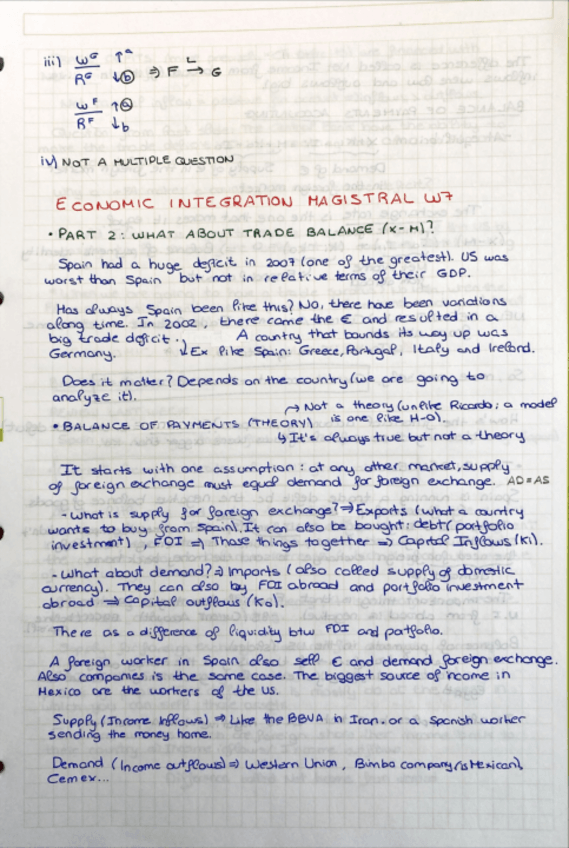 iii) W^G/R^G ↑a ↓ⓑ ⇒ F →^L G
W^F/R^F ↑ⓐ ↓b
iv) NOT A MULTIPLE QUESTION
ECONOMIC INTEGRATION MAGISTRAL W7
• PART 2: WHAT ABOUT TRADE BALANCE (X-M)?
Spain had a huge deficit in 2007 (one of the greatest). US was
worst than Spain but not in relative terms of their GDP.
Has always Spain been like this? No, there have been variations
along time. In 2002, there came the € and resulted in a
big trade deficit. A country that bounds its way up was
Germany. ↓Ex like Spain: Greece, Portugal, Italy and Ireland.
Does it matter? Depends on the country (we are going to
analyze it).
→ Not a theory (unlike Ricardo; a model
• BALANCE OF PAYMENTS (THEORY) is one like H-O).
↳ It's always true but not a theory
It starts with one assumption: at any other market, supply
of foreign exchange must equal demand for foreign exchange. AD=AS
- What is supply for foreign exchange? ⇒ Exports (what a country
wants to buy from Spain). It can also be bought: debt (portfolio
investment), FDI ⇒ Those things together ⇒ Capital Inflows (Ki).
- What about demand? ⇒ Imports (also called supply of domestic
currency). They can also by FDI abroad and portfolio investment
abroad ⇒ Capital outflows (Ko).
There as a difference of liquidity btw FDI and patfolio.
A foreign worker in Spain also sell € and demand foreign exchange.
Also companies is the same case. The biggest source of income in
Mexico are the workers of the US.
Supply (Income Inflows) ⇒ Like the BBVA in Iran. or a Spanish worker
sending the money home.
Demand (Income outflows) ⇒ Western Union, Bimbo company (is Mexican),
Cemex...